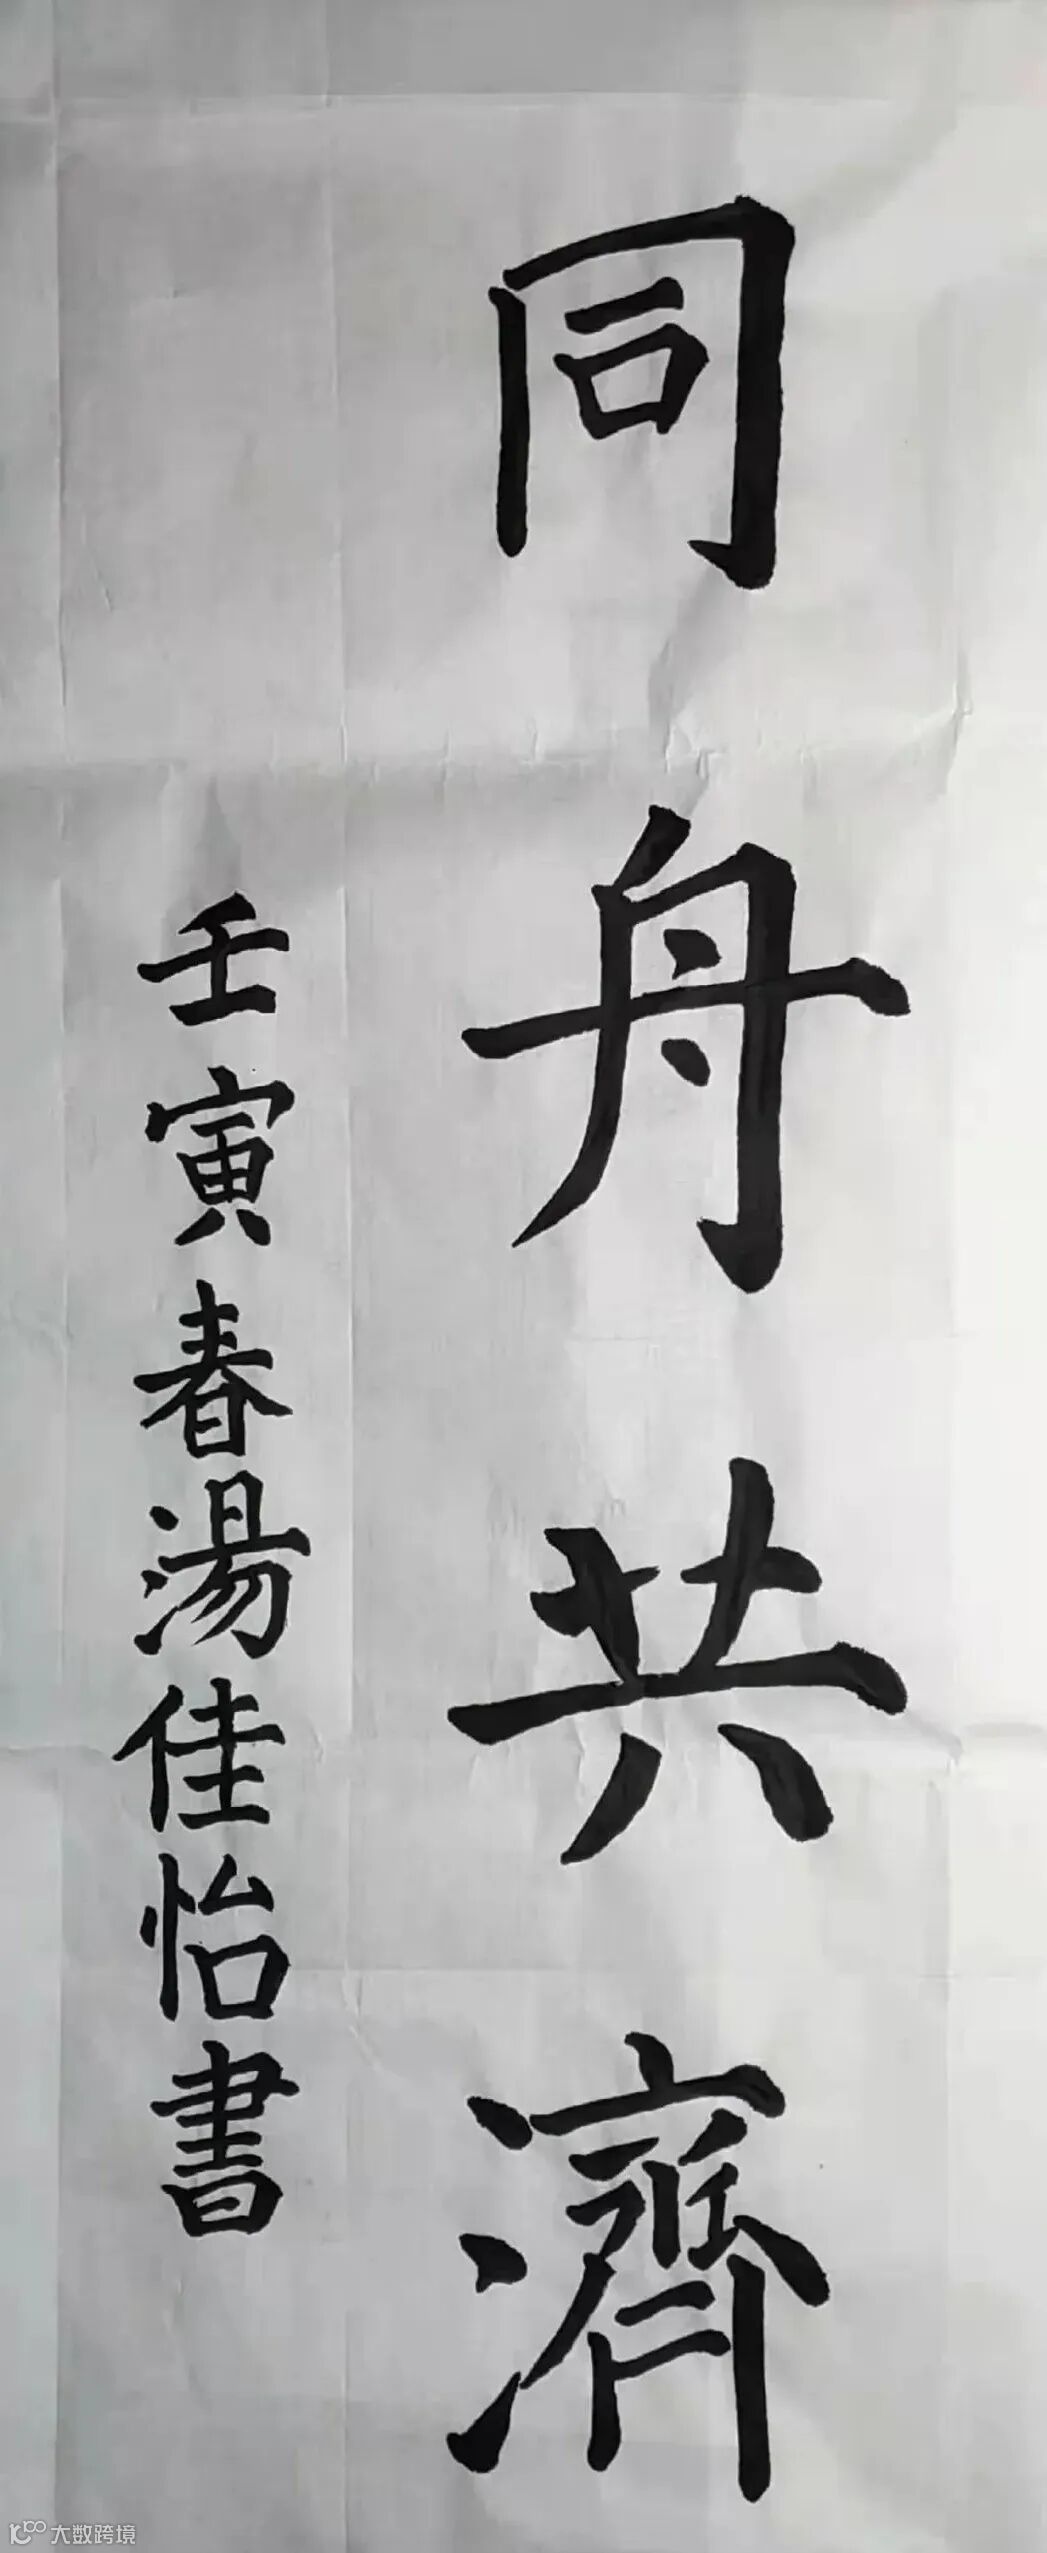 同舟共濟
壬寅春湯佳怡書
大数跨境